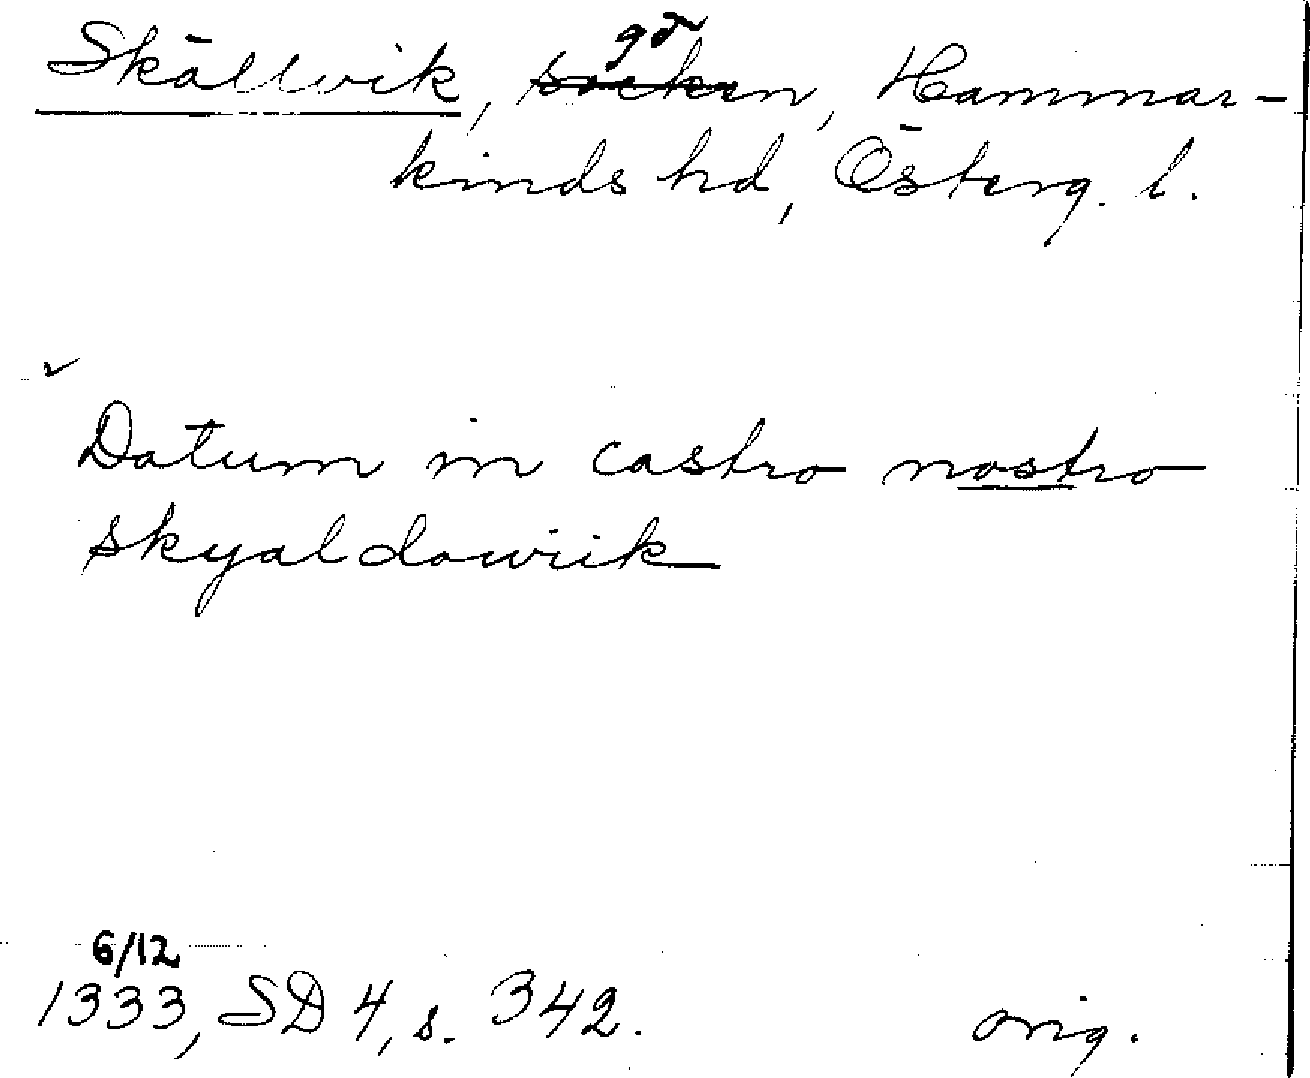 Skällvik, socken, Hammar-
gd
kinds hd, Österg. l.
Datum in castro nostro
skyaldowiik
6/12
1333, SD 4, s. 342.
orig.